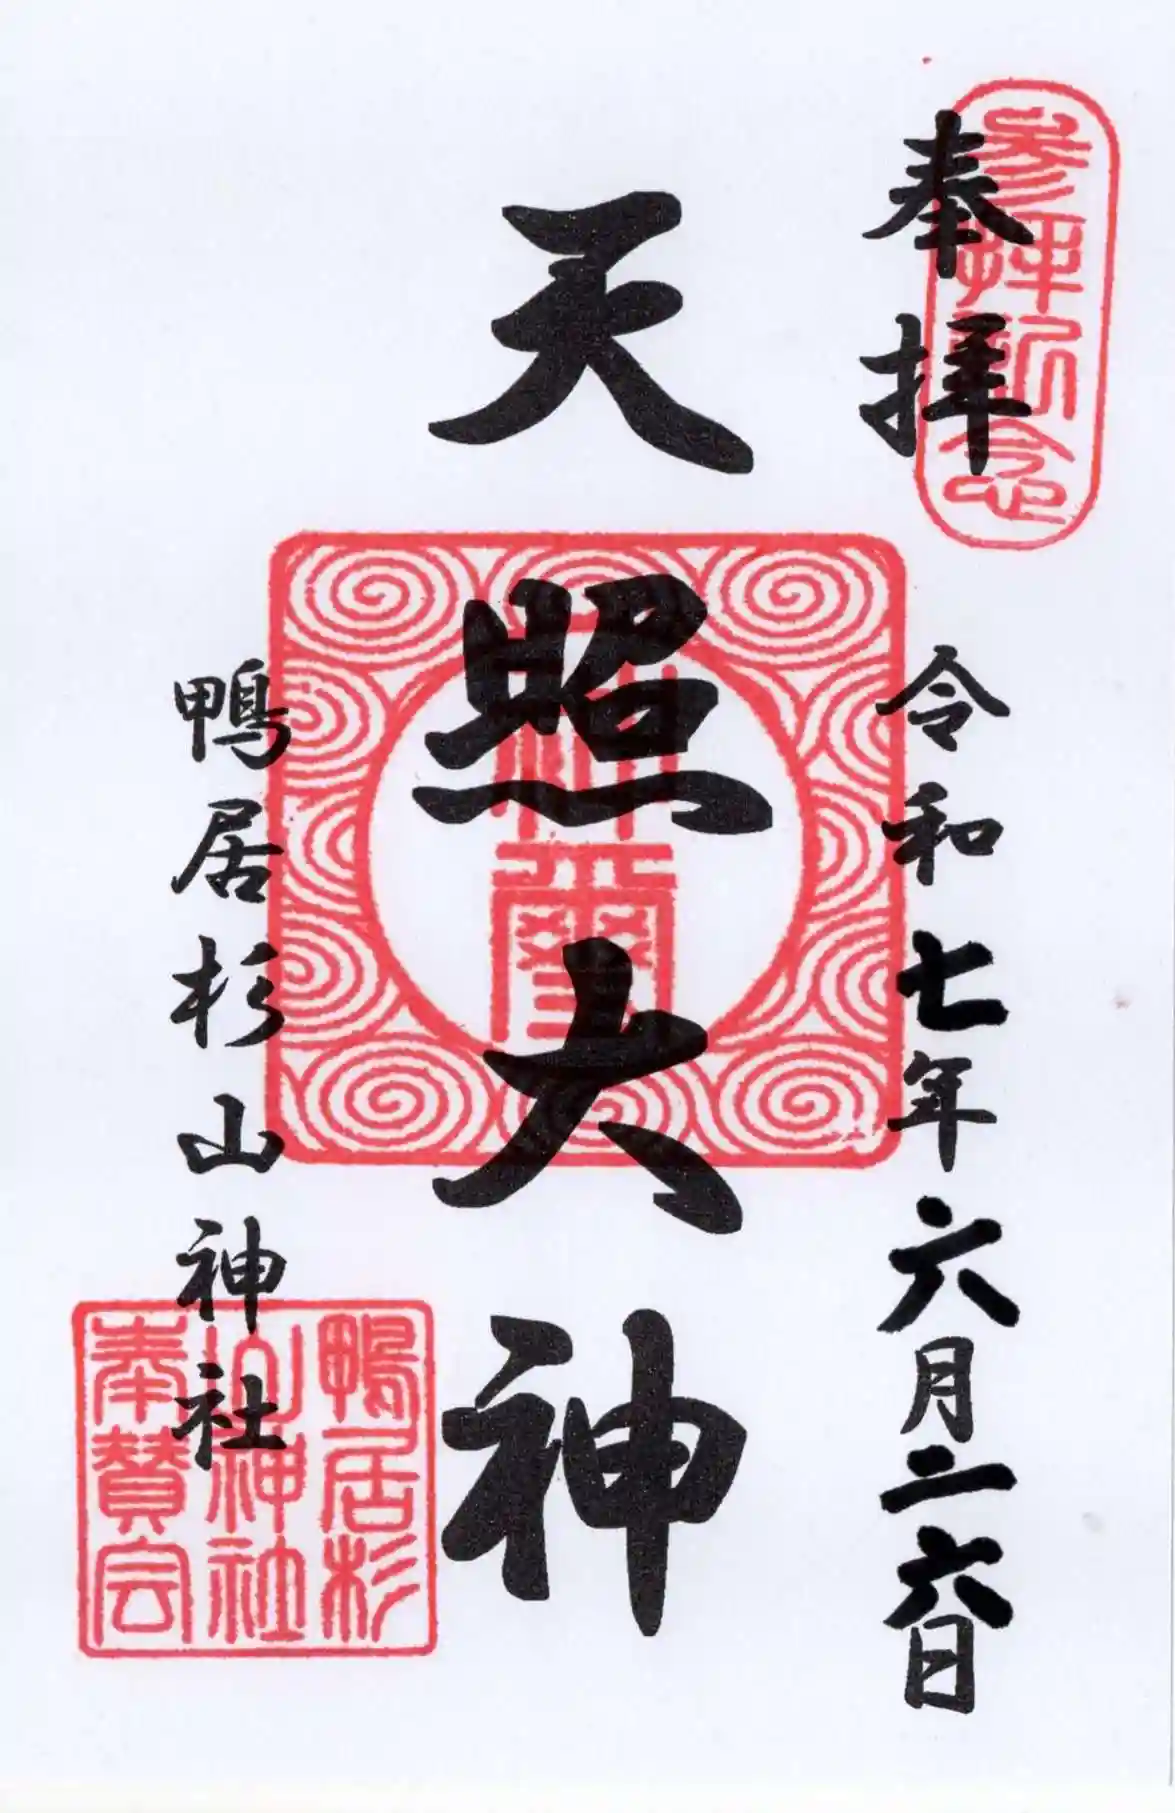 奉拝
参拝祈念
令和七年六月二六日
天照大神
神璽
鴨居杉山神社
鴨居杉
山神社
奉賛会